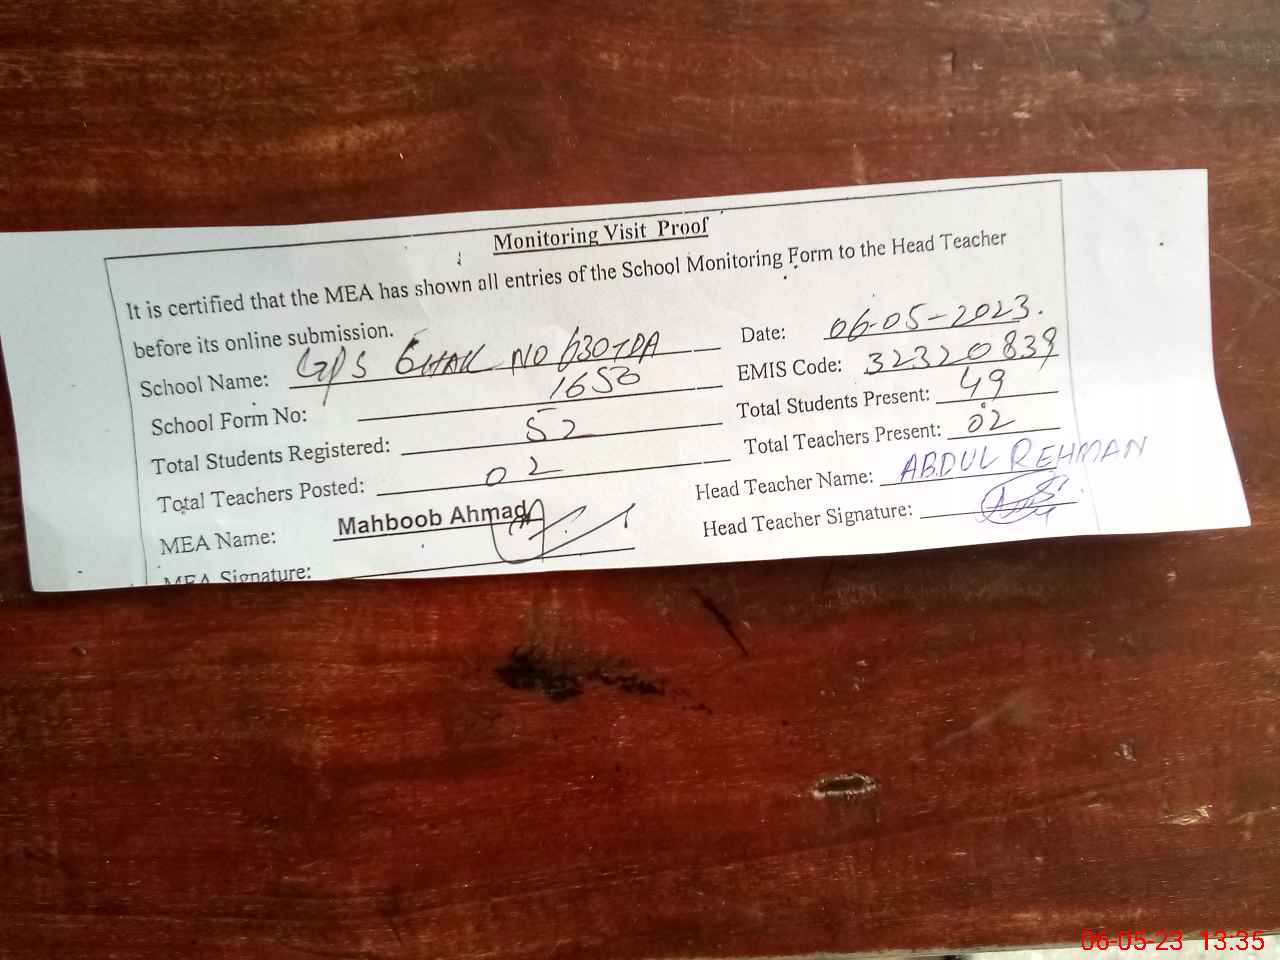 Monitoring Visit Proof
It is certified that the MEA has shown all entries of the School Monitoring Form to the Head Teacher
before its online submission.
School Name: GPS CHAK NO 630TDA
Date: 06-05-2023.
School Form No: 1658
EMIS Code: 32320839
Total Students Registered: 52
Total Students Present: 49
Total Teachers Posted: 02
Total Teachers Present: 02
MEA Name: Mahboob Ahmad
Head Teacher Name: ABDUL REHMAN
MEA Signature:
Head Teacher Signature:
06-05-23 13.35